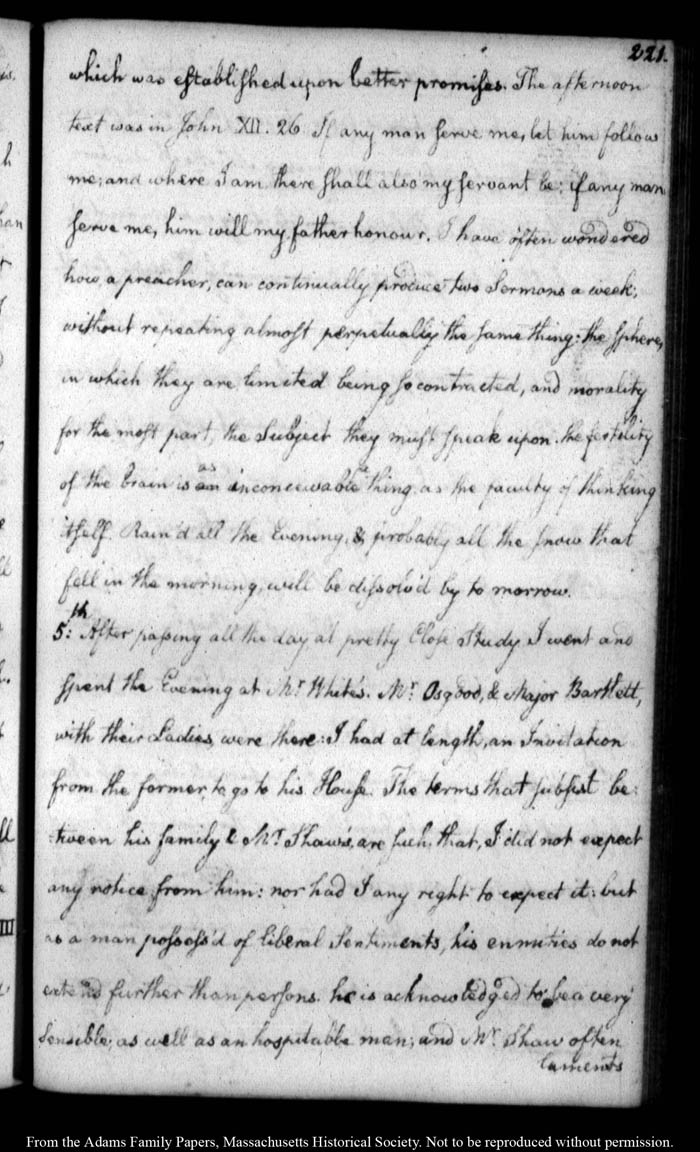 221.
which was established upon better promises. The afternoon
text was in John XII. 26 If any man serve me, let him follow
me; and where I am there shall also my servant be; if any man
serve me, him will my father honour. I have often wondered
how a preacher, can continually produce two Sermons a week;
without repeating almost perpetually the same thing: the sphere,
in which they are limited being so contracted, and morality
for the most part, the Subject they must speak upon. the fertility
of the brain is as an inconceivable thing as the faculty of thinking
itself. Rain'd all the Evening, & probably all the snow that
fell in the morning, will be dissolv'd by to morrow.
5:th After passing all the day at pretty Close Study I went and
spent the Evening at Mr White's. Mr Osgood, & Major Bartlett,
with their Ladies, were there: I had at length, an Invitation
from the former, to go to his House. The terms that subsist be:
tween his family & Mr Shaw's, are such, that, I did not expect
any notice from him: nor had I any right to expect it: but
as a man possess'd of liberal Sentiments, his enmities do not
extend further than persons. he is acknowledged to be a very
Sensible; as well as an hospitable man; and Mr Shaw often
laments
III
From the Adams Family Papers, Massachusetts Historical Society. Not to be reproduced without permission.